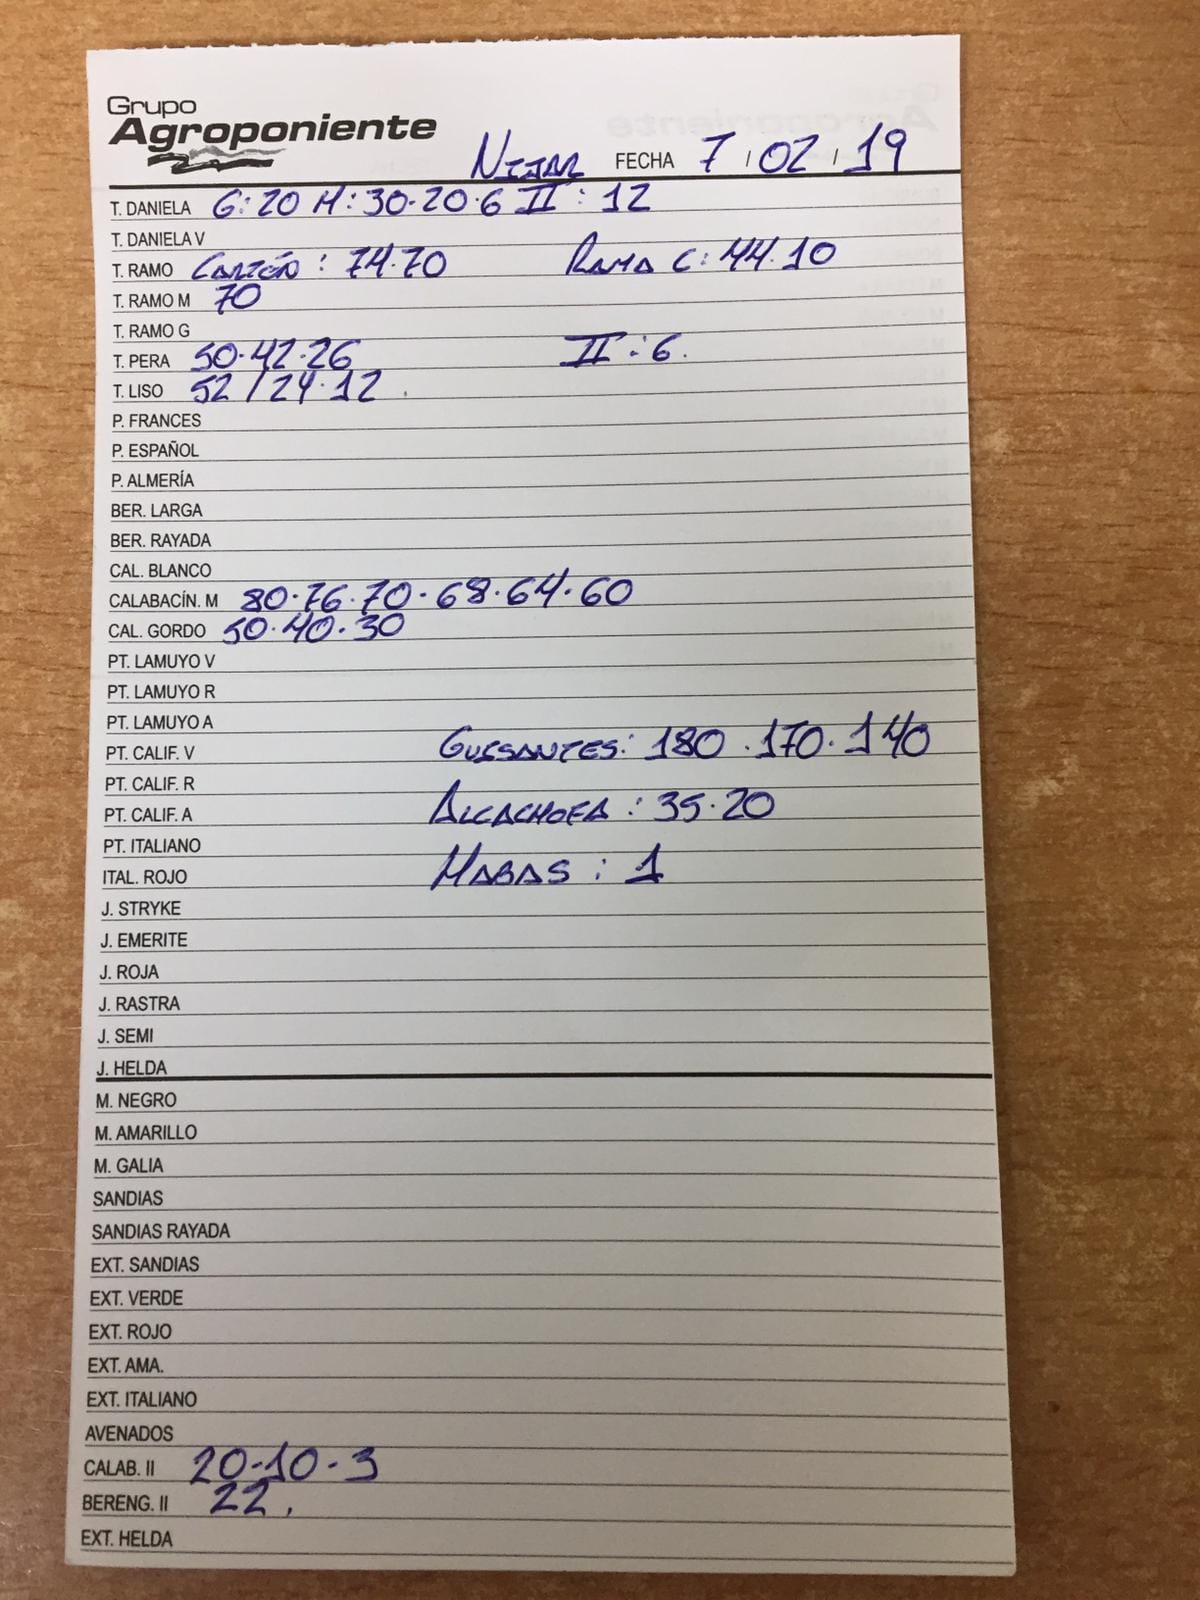 Grupo
Agroponiente
NIJAR FECHA 7 / 02 / 19
T. DANIELA G: 20 M: 30·20·6 II : 12
T. DANIELA V
T. RAMO CARTÓN : 74·70 RAMA C: 44·10
T. RAMO M 70
T. RAMO G
T. PERA 50·42·26 II : 6.
T. LISO 52 / 24·12 .
P. FRANCES
P. ESPAÑOL
P. ALMERÍA
BER. LARGA
BER. RAYADA
CAL. BLANCO
CALABACÍN. M 80·76·70·68·64·60
CAL. GORDO 50·40·30
PT. LAMUYO V
PT. LAMUYO R
PT. LAMUYO A
PT. CALIF. V GUISANTES: 180 ·170·140
PT. CALIF. R
PT. CALIF. A ALCACHOFA : 35·20
PT. ITALIANO
ITAL. ROJO HABAS : 1
J. STRYKE
J. EMERITE
J. ROJA
J. RASTRA
J. SEMI
J. HELDA
M. NEGRO
M. AMARILLO
M. GALIA
SANDIAS
SANDIAS RAYADA
EXT. SANDIAS
EXT. VERDE
EXT. ROJO
EXT. AMA.
EXT. ITALIANO
AVENADOS
CALAB. II 20·10·3
BERENG. II 22.
EXT. HELDA